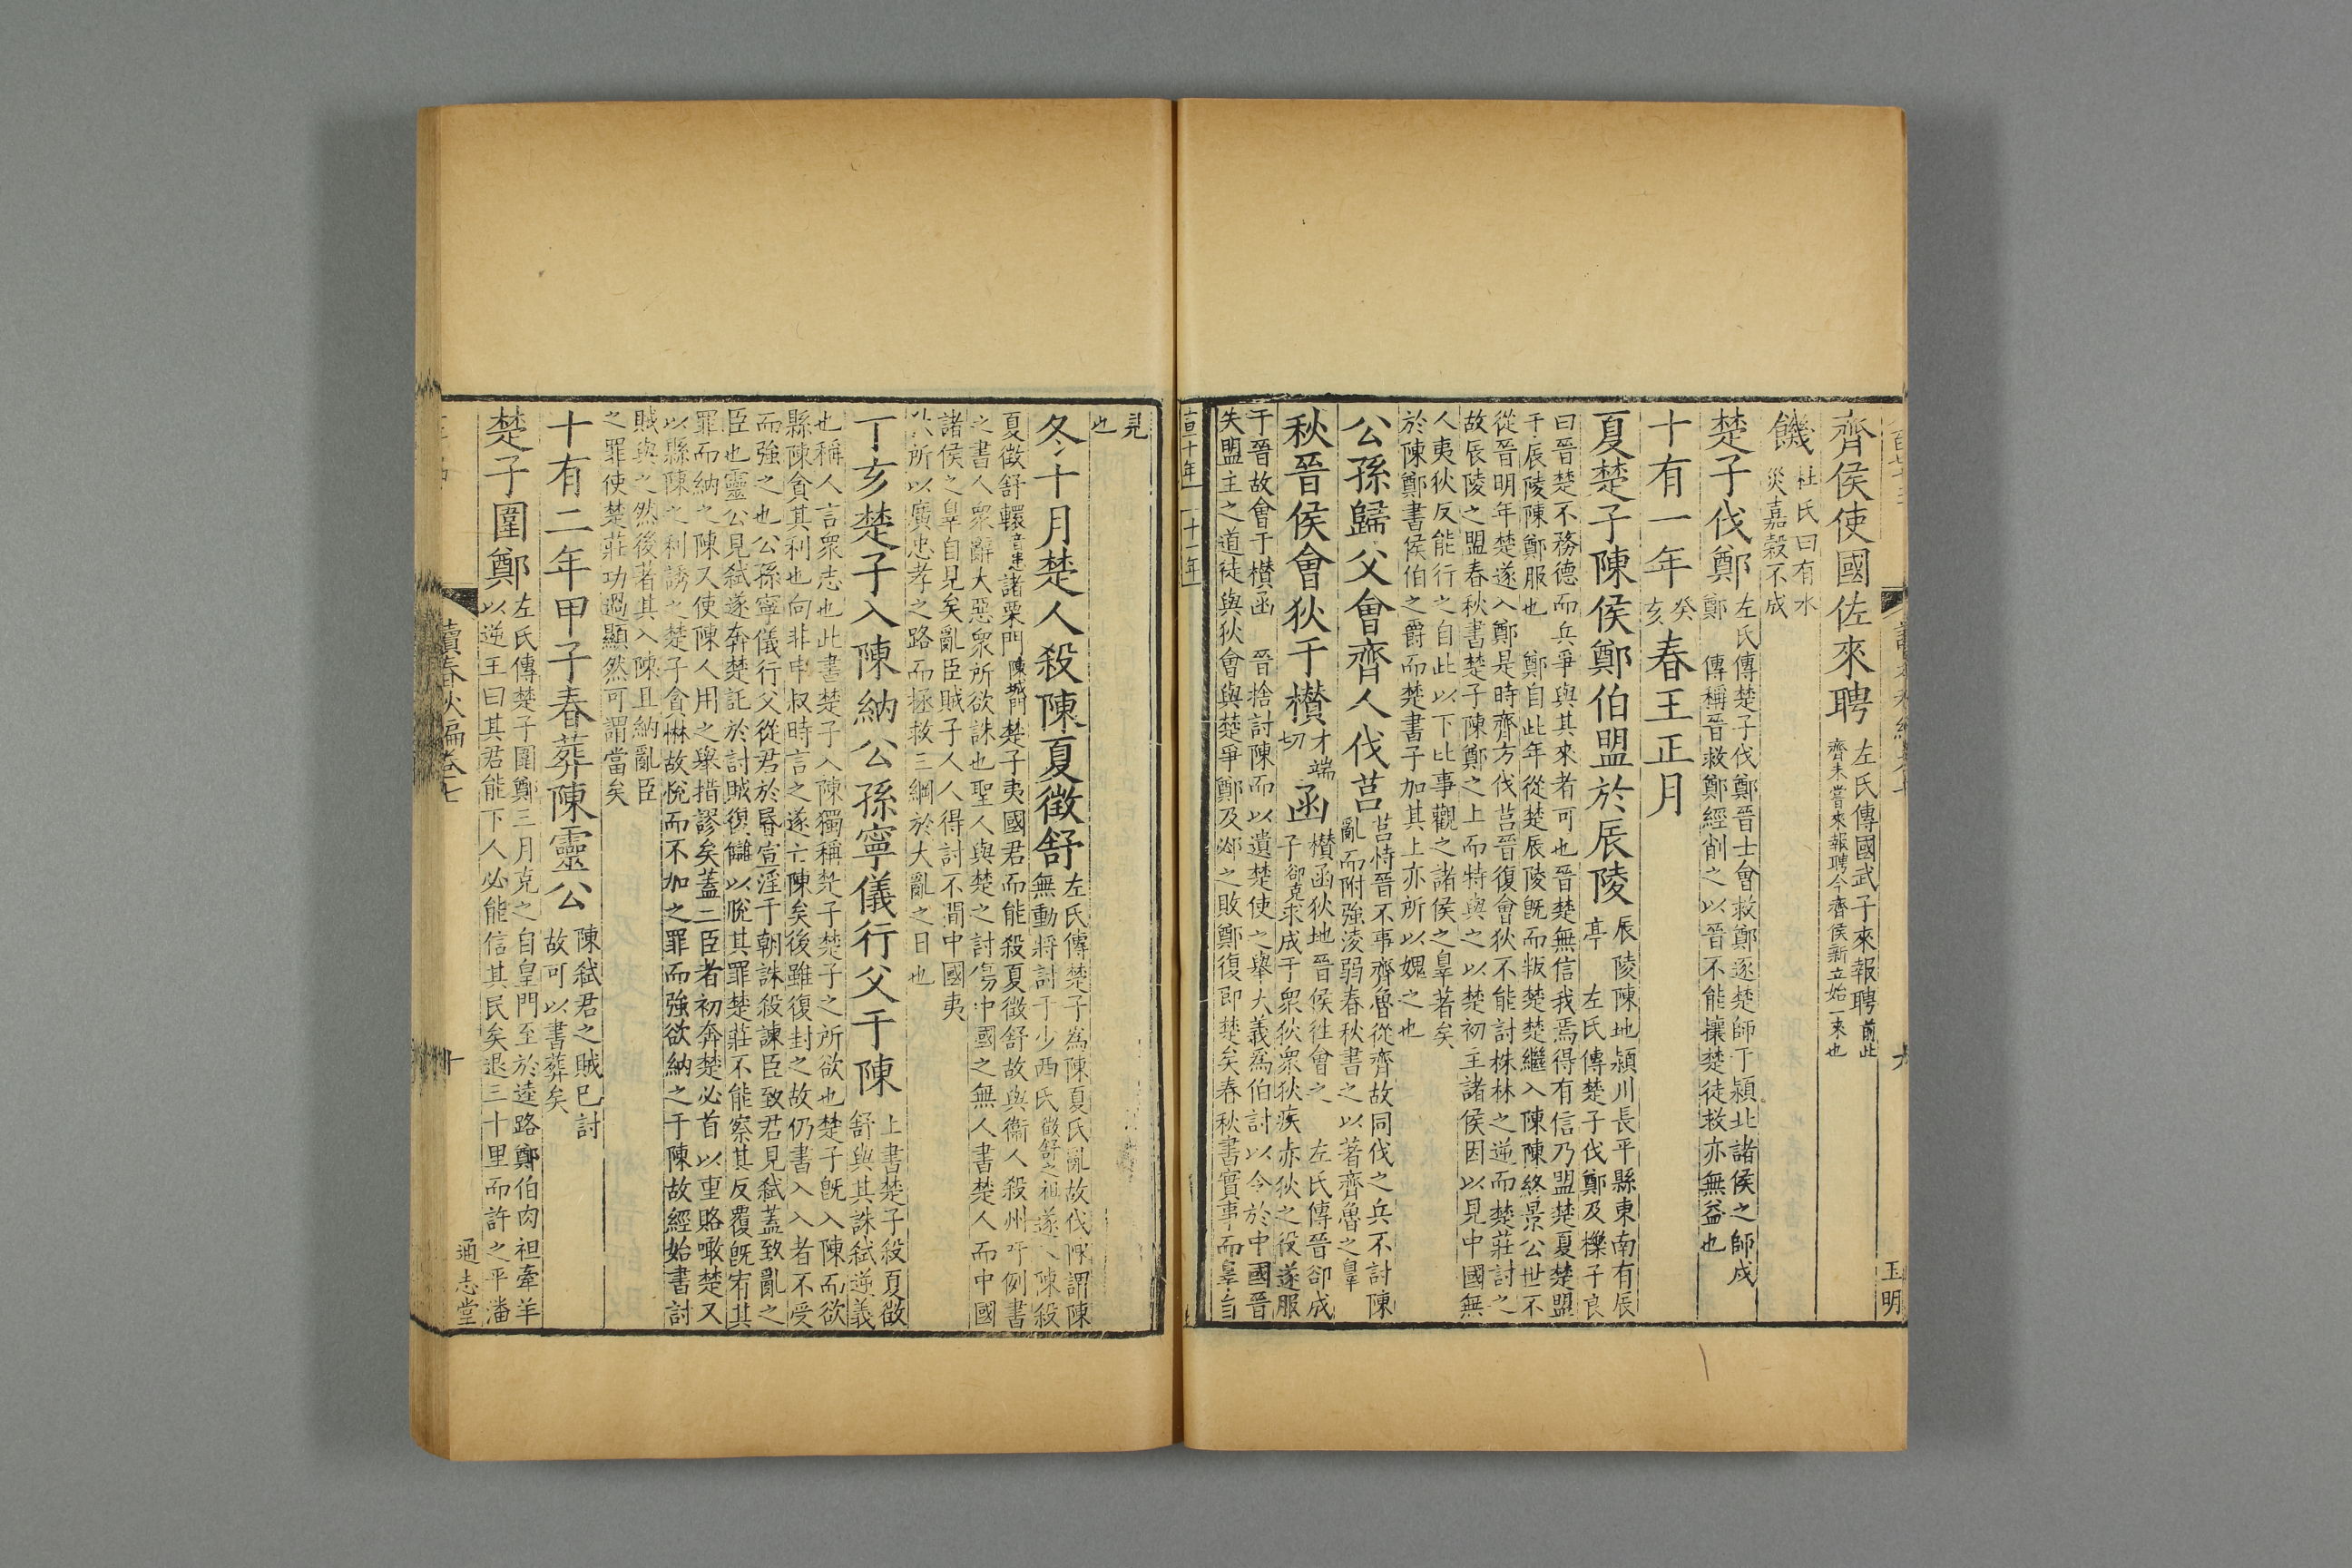 齊侯使國佐來聘 左氏傳國武子來報聘 前此齊未嘗來報聘今齊侯新立始一來也
饑 杜氏曰有水災嘉穀不成
楚子伐鄭 左氏傳楚子伐鄭晉士會救鄭逐楚師于潁北諸侯之師戍鄭 傳稱晉救鄭經削之以晉不能攘楚徒救亦無益也
十有一年 癸亥 春王正月
夏楚子陳侯鄭伯盟於辰陵 辰陵陳地潁川長平縣東南有辰亭 左氏傳楚子伐鄭及櫟子良
曰晉楚不務德而兵爭與其來者可也晉楚無信我焉得有信乃盟楚夏楚盟
于辰陵陳鄭服也 鄭自此年從楚辰陵旣而叛楚楚繼入陳陳終景公世不
從晉明年楚遂入鄭是時齊方伐莒晉復會狄不能討株林之逆而楚莊討之
故辰陵之盟春秋書楚子陳鄭之上而特與之以楚初主諸侯因以見中國無
人夷狄反能行之自此以下比事觀之諸侯之辠著矣
於陳鄭書侯伯之爵而楚書子加其上亦所以媿之也
公孫歸父會齊人伐莒 莒恃晉不事齊魯從齊故同伐之兵不討陳亂而附強淩弱春秋書之以著齊魯之辠
秋晉侯會狄于欑 才端切 函 欑函狄地晉侯徃會之 左氏傳晉郤成子 郤克 求成于衆狄衆狄疾赤狄之役遂服
于晉故會于欑函 晉捨討陳而以遺楚使之舉大義爲伯討以令於中國晉
失盟主之道徒與狄會與楚爭鄭及邲之敗鄭復即楚矣春秋書實事而辠自
宣十年 十一年
玉明
見
也
冬十月楚人殺陳夏徵舒 左氏傳楚子爲陳夏氏亂故伐陳謂陳無動將討于少西氏 徵舒之祖 遂入陳殺
夏徵舒轘 音患 諸栗門 陳城門 楚子夷國君而能殺夏徵舒故與衞人殺州吁例書
之書人衆辭大惡衆所欲誅也聖人與楚之討傷中國之無人書楚人而中國
諸侯之辠自見矣亂臣賊子人人得討不間中國夷
狄所以廣忠孝之路而拯救三綱於大亂之日也
丁亥楚子入陳納公孫寧儀行父于陳 上書楚子殺夏徵舒與其誅弑逆義
也稱人言衆志也此書楚子入陳獨稱楚子楚子之所欲也楚子旣入陳而欲
縣陳貪其利也向非申叔時言之遂亡陳矣後雖復封之故仍書入入者不受
而強之也公孫寧儀行父從君於昬宣淫于朝誅殺諫臣致君見弑蓋致亂之
臣也靈公見弑遂奔楚託於討賊復讎以脫其罪楚莊不能察其反覆旣宥其
罪而納之陳又使陳人用之舉措謬矣蓋二臣者初奔楚必首以重賂噉楚又
以縣陳之利誘之楚子貪惏故悅而不加之罪而強欲納之于陳故經始書討
賊與之然後著其入陳且納亂臣
之罪使楚莊功過顯然可謂當矣
十有二年甲子春葬陳靈公 陳弑君之賊已討故可以書葬矣
楚子圍鄭 左氏傳楚子圍鄭三月克之自皇門至於逵路鄭伯肉袒牽羊以逆王曰其君能下人必能信其民矣退三十里而許之平潘
讀春秋編卷七 十 通志堂